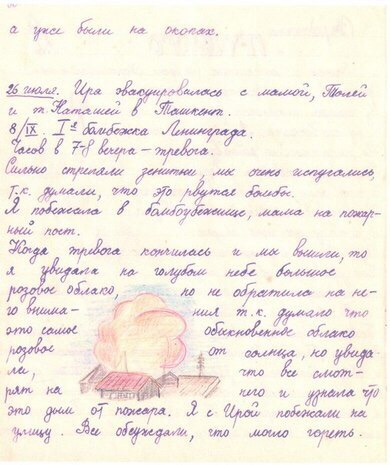 а уже были на окопах.
26 июля. Ира эвакуировалась с мамой, Толей
и т. Наташей в Ташкент.
8/IX. Iая бомбежка Ленинграда.
Часов в 7-8 вечера – тревога.
Сильно стреляли зенитки, мы очень испугались,
т.к. думали, что это рвутся бомбы.
Я побежала в бомбоубежище, мама на пожар-
ный пост.
Когда тревога кончилась и мы вышли, то
я увидала на голубом небе большое
розовое облако, но не обратила на не-
го внима- ния т.к. думала что
это самое обыкновенное облако
розовое от солнца, но увида-
ла, что все смот-
рят на него и узнала что
это дым от пожара. Я с Ирой побежали на
улицу. Все обсуждали, что могло гореть.